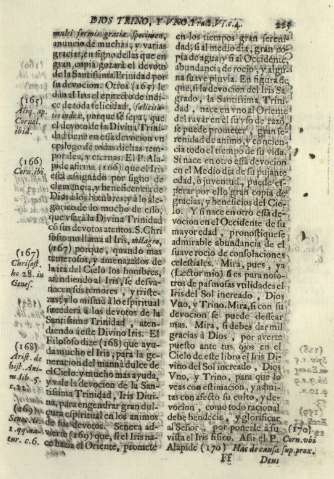 DIOS TRINO, Y VNO, Trat. VI. c. 4.
multi formis gratiæ specimen,
anuncio de muchas, y varias
gracias, en signo dellas que en
gran copia gozarà el devoto
de la Santissima Trinidad por
la devocion. Otros (165) le
dàn al Iris el aparecio de indi-
ce de toda felicidad,
index, porque se sepa, que
el devoto de la Divina Trini-
dad tiene en esta devocion vn
epilogo de todas dichas tem-
porales, y eternas. El P. Ala-
pide afirma (166) que el Iris
està asignado por signo de
clemencia, y beneficencia de
Dios a los hombres, y a lo ale-
gorico de lo mucho de ello,
que vsarà la Divina Trinidad
con sus devotos atentos. S. Chri
sostomo llama al Iris, milagro,
(167) porque, quando mas
temerosos, y amenazados de
la ira del Cielo los hombres,
atendiendo al Iris, se desva-
necen sus temores, y triste-
zas; y lo mismo a lo espiritual
sucederà a los devotos de la
Santissima Trinidad, aten-
diendo a este Divino Iris. El
Filosofo dize (168) que ayu-
da mucho el Iris, para la ge-
neracion del mannà dulce de
el Cielo: y mucho mas ayuda,
y vale la devocion de la San-
tissima Trinidad, Iris Divi-
na, para engendrar gran dul-
çura espiritual en los animos
de sus devotos. Seneca ad-
vierte (169) que, si el Iris na-
ce hazia el Oriente, promete
(165)
Alap.
Cornel.
ibid.
(166)
Corn. ibi
(167)
Chrisost.
ho 28. in
Genes.
(168)
Arist. de
hist. Ani-
m. lib. 5.
(169)
Senec. na
tur. c. 6.
en los tiempos gran sereni-
dad; si al medio dia, gran co-
pia de agua; y si al Occidente,
abundancia de rocio, y algu-
na suave pluvia. En figura de
que, si la devocion de el Iris Sa
grado, la Santissima Trini-
dad, nace en vno al Oriente
del rayar en èl su vso de razò,
se puede prometer, gran se-
renidad de animo, y concien-
cia todo el tiempo de su vida.
Si nace en otro essa devocion
en el Medio dia de su pujante
edad, ò juventud, puede es-
perar por ello gran copia de
gracias, y beneficios del Cie-
lo. Y si nace en otro essa de-
vocion en el Occidente de su
mayor edad, pronostiquese
admirable abundancia de el
suave rocio de consolaciones
celestiales. Mira, pues, ya
(Lector mio) si es para noso-
tros de pasmosas vtilidades el
Iris del Sol increado, Dios
Vno, y Trino. Mira, si con su
devocion se puede dessear
mas. Mira, si debes dar mil
gracias a Dios, por averte
puesto ante tus ojos en el
Cielo de este libro el Iris Di-
vino del Sol increado, Dios
Vno, y Trino, para que lo
veas con estimacion, y admi-
tas con afecto su culto, y de-
vocion, como todo racional
debe hendecir, y glorificar
al Señor, por ponerle a su
vista el Iris fisico. Assi el P.
Alapide (170) Hac de causa sup. prox.
Corn. vbi
Ff
Deus